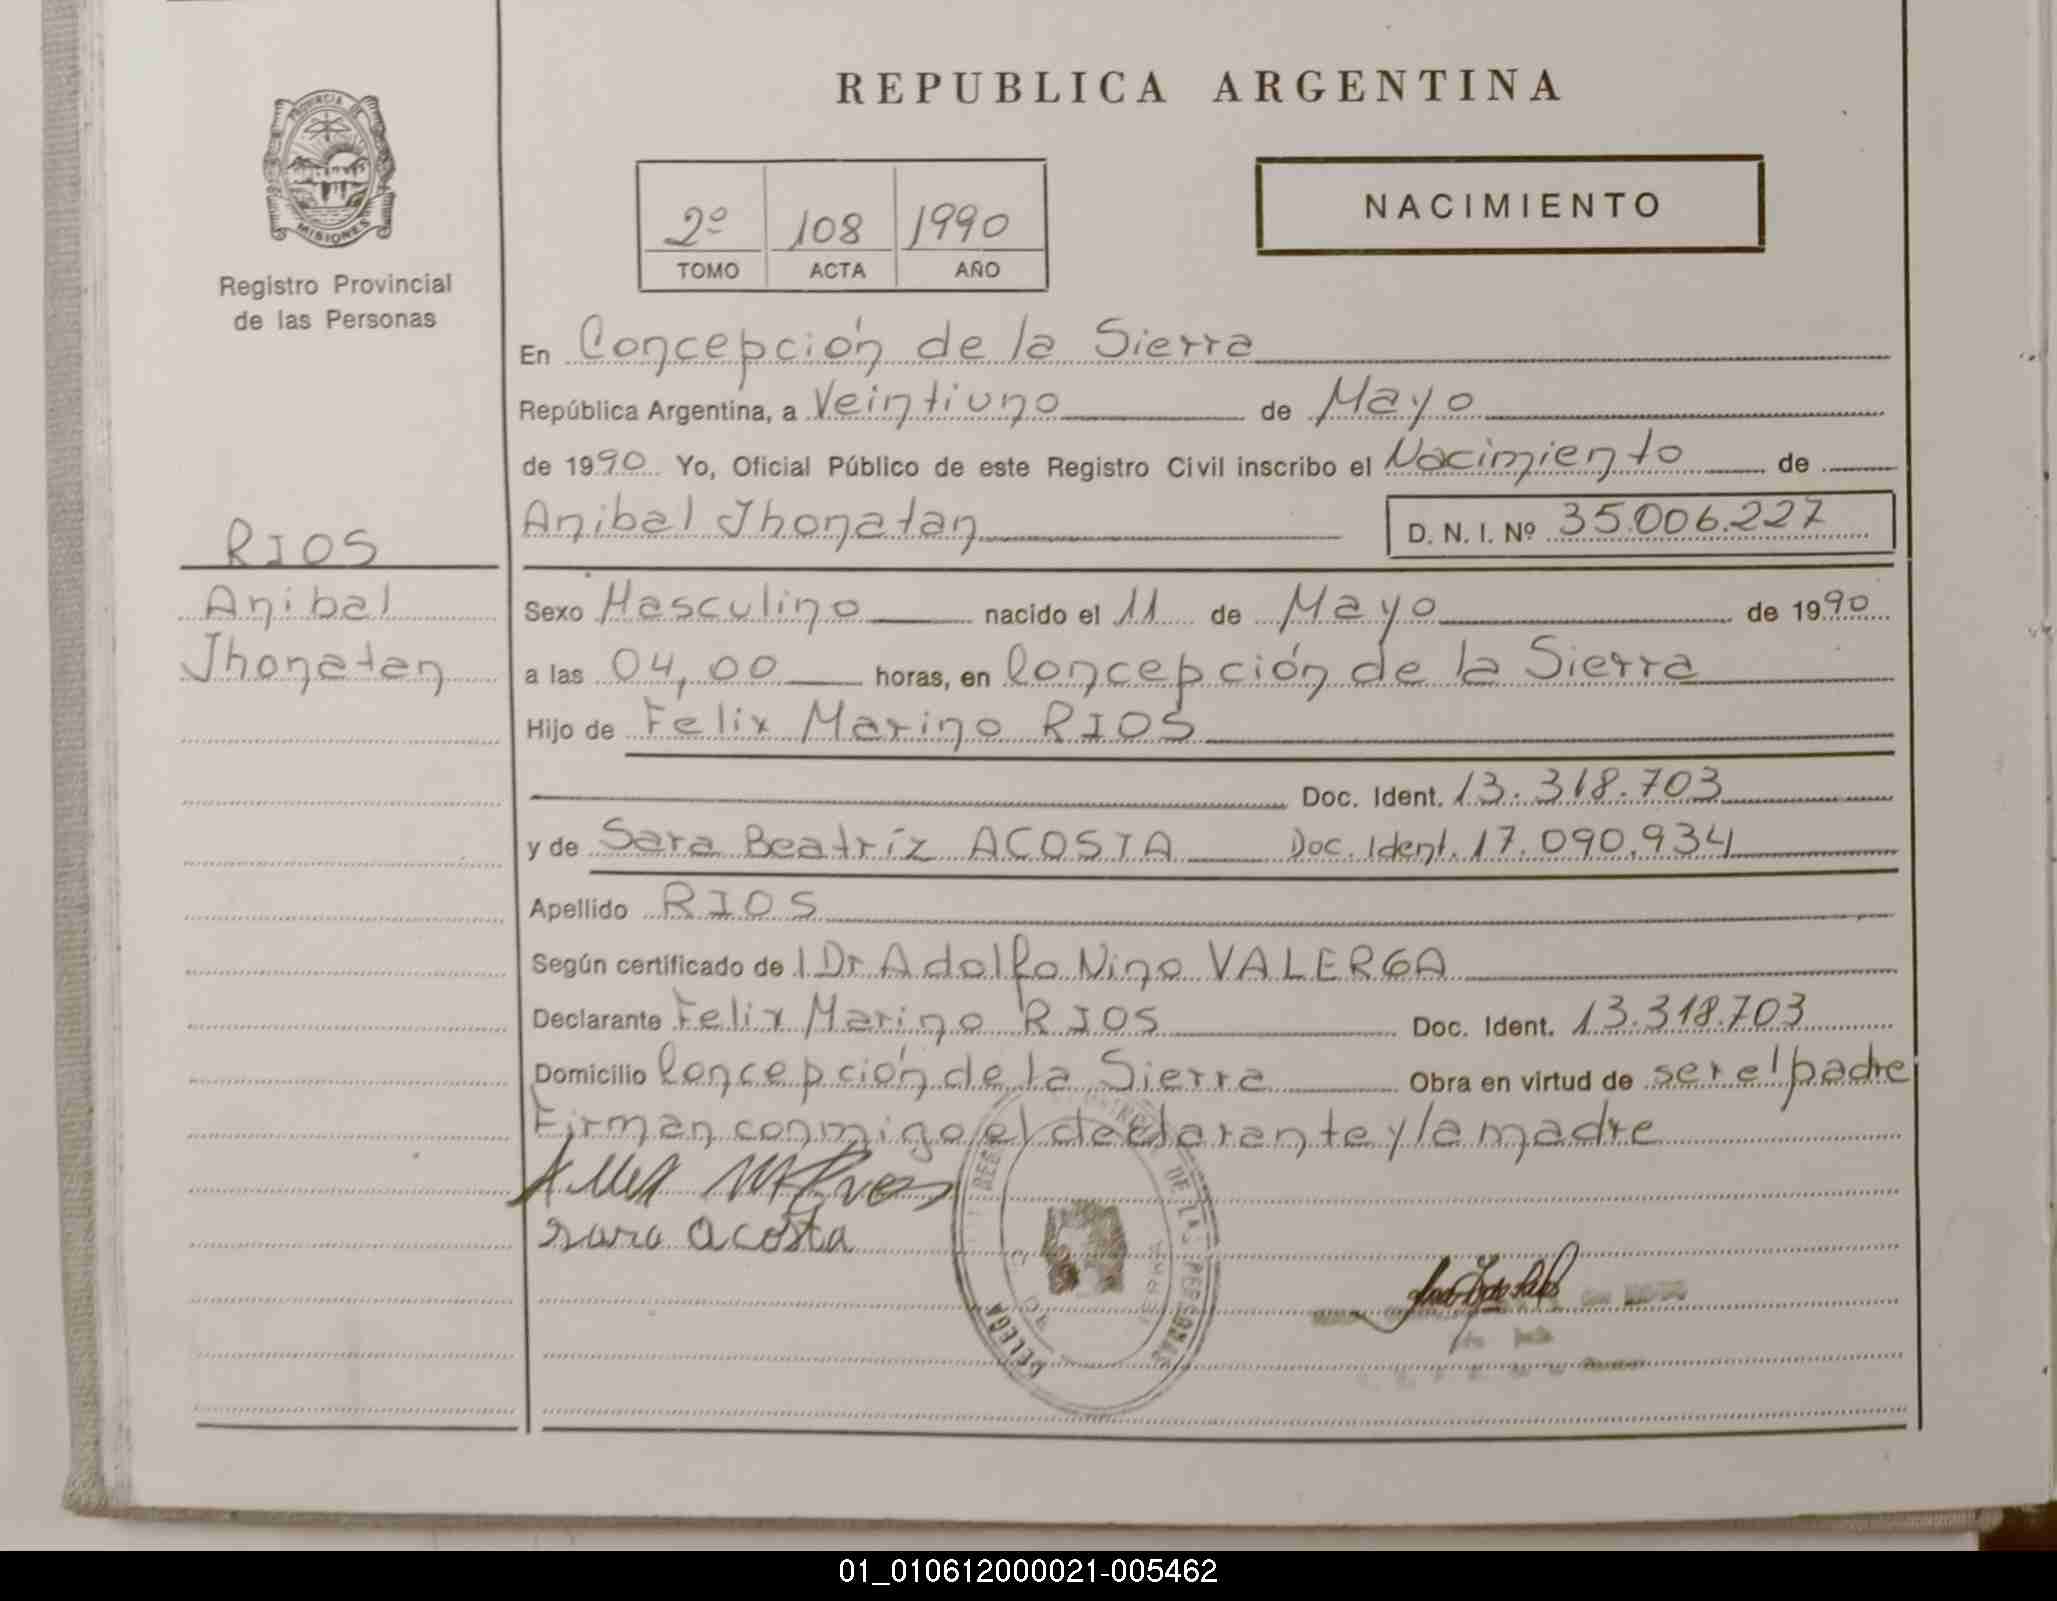 REPUBLICA ARGENTINA
PROVINCIA DE MISIONES
Registro Provincial
de las Personas
2º 108 1990
TOMO ACTA AÑO
NACIMIENTO
En Concepción de la Sierra
República Argentina, a Veintiuno de Mayo
de 1990 Yo, Oficial Público de este Registro Civil inscribo el Nacimiento de
Anibal Jhonatan D. N. I. Nº 35.006.227
RIOS
Anibal
Jhonatan
Sexo Masculino nacido el 11 de Mayo de 1990
a las 04,00 horas, en Concepción de la Sierra
Hijo de Felix Marino RIOS
Doc. Ident. 13.318.703
y de Sara Beatríz ACOSTA Doc. Ident. 17.090.934
Apellido RIOS
Según certificado de l Dr Adolfo Nino VALERGA
Declarante Felix Marino RIOS Doc. Ident. 13.318.703
Domicilio Concepción de la Sierra Obra en virtud de ser el padre
Firman conmigo el declarante y la madre
sara acosta
DE LAS PERSONAS
01_010612000021-005462